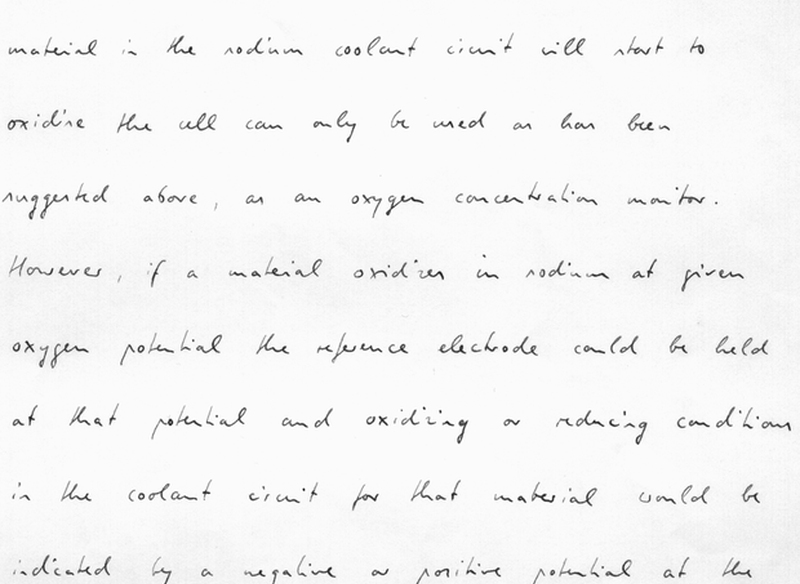 material in the sodium coolant circuit will start to
oxidise the cell can only be used as has been
suggested above, as an oxygen concentration monitor.
However, if a material oxidizes in sodium at given
oxygen potential the reference electrode could be held
at that potential and oxidizing or reducing conditions
in the coolant circuit for that material would be
indicated by a negative or positive potential at the